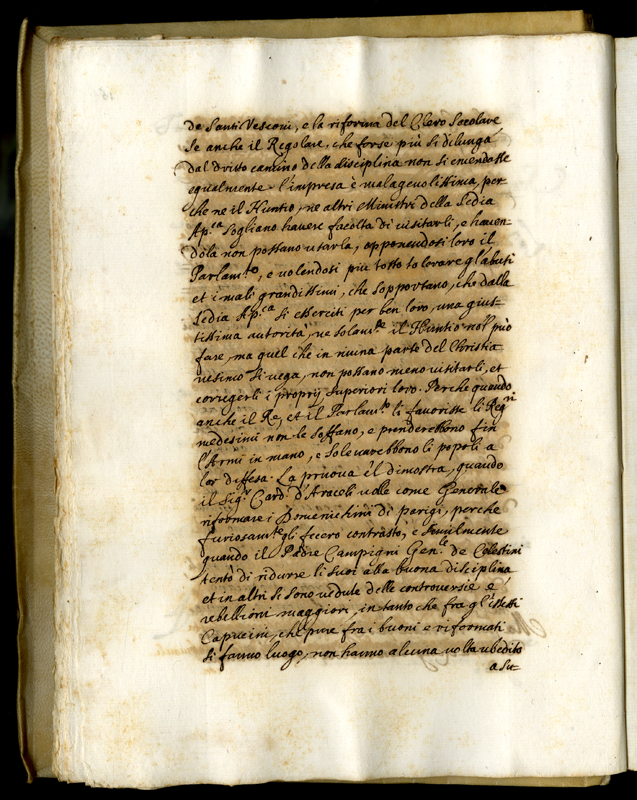 de Santi Vesconi, e la riforma del Clero Secolare
Se anche il Regolare, che forse più si dilunga
dal dritto camino della disciplina non si emendasse
egualmente. l'impresa è malageuolissima, per-
che ne il Nuntio, ne altri Ministri della Sedia
Ap.ca sogliano hauere facoltà di uisitarli, e hauen-
dola non possano usarla, opponendosi loro il
Parlam.to, e uolendosi più tosto tolorare gl'abusi
et i mali grandissimi, che sopportano, che dalla
Sedia Ap.ca si esserciti per ben loro, una gius-
tissima autorità, ne solam.te il Nuntio nol può
fare, ma quel che in niuna parte del Christia
nesimo si uega, non possano meno uisitarli, et
corregerli i proprij superiori loro. Perche quando
anche il Re, et il Parlam.to li fauorisse li Reg.ri
medesimi non lo soffano, e prenderebbono fin
l'Armi in mano, e soleuarebbono li popoli a
lor diffesa. La pruoua è l dimostra, quando
il Sig.r Card. d'Aracoli uolle come Generale
riformare i Domenichini di parigi, perche
furiosam.te gli fecero contrasto, e similmente
quando il Padre Campigni Gen.le de Celestini
tentò di ridurre li suoi alla buona disciplina
et in altri si sono uedute delle controuersie e
rebellioni maggiori, in tanto che fra gl'istessi
Capucini, che pure fra i buoni e riformati
si fanno luogo, non hanno alcuna uolta ubedito
a su-